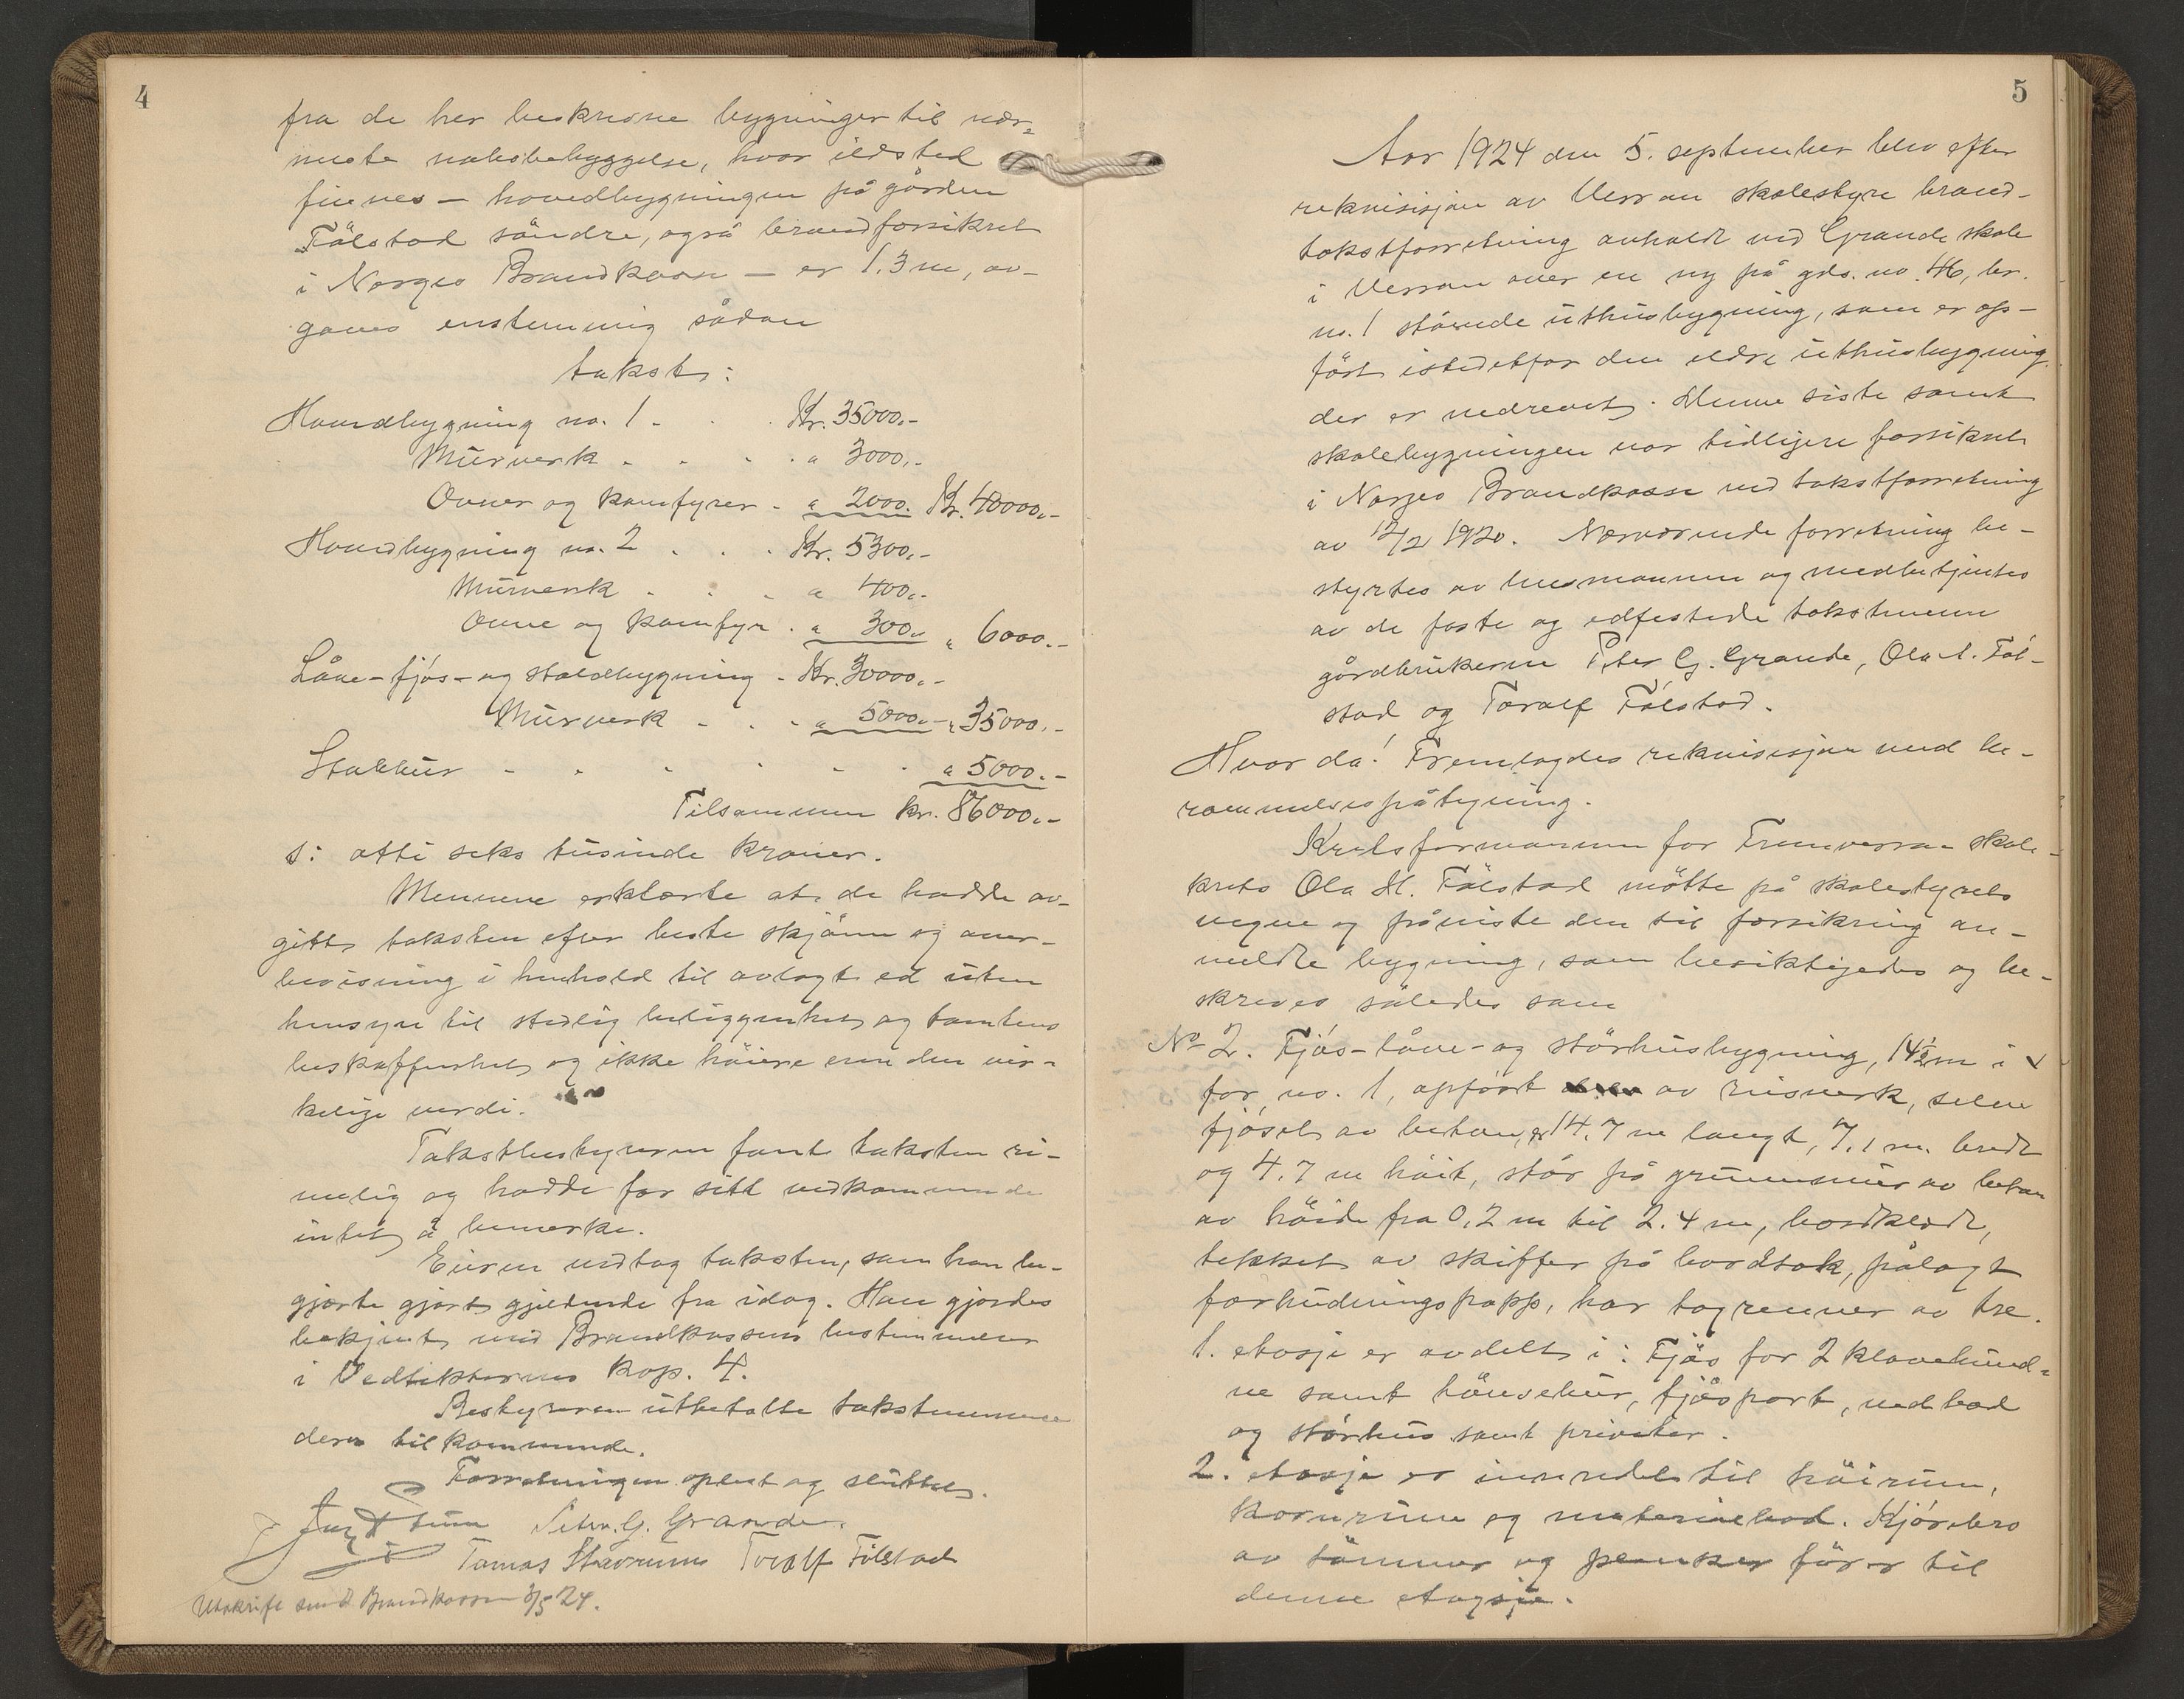 4
fra de her beskrevne bygninger til nær-
meste nabobebyggelse, hvor ildsted
finnes — hovedbygningen på gården
Fölstad söndre, også brandforsikret
i Norges Brandkasse — er 1.3 m, av-
gaves enstemmig sådan
takst:
Hovedbygning no. 1 . . . Kr. 35000.-
Murverk . . . . " 3000.-
Ovner og komfyrer . " 2000. Kr. 40000.-
Hovedbygning no. 2 . . . Kr. 5300.-
Murverk . . . " 400.-
Ovne og komfyr . " 300.- " 6000.-
Låve- fjös- og staldbygning . Kr. 30000.-
Murverk . . . " 5000.- " 35000.-
Stabbur . . . . . . " 5000.-
Tilsammen kr. 86000.-
s: otti seks tusinde kroner.
Mennene erklærte at de hadde av-
gitt taksten efter beste skjönn og over-
bevisning i henhold til avlagt ed uten
hensyn til stedlig beliggenhet og tomtens
beskaffenhet og ikke höiere enn den vir-
kelige verdi.
Takstbestyreren fant taksten ri-
melig og hadde for sitt vedkommende
intet å bemerke.
Eieren vedtog taksten, som han be-
gjærte gjort gjeldende fra idag. Han gjordes
bekjent med Brandkassens bestemmelser
i Vedtekternes kap. 4.
Bestyreren utbetalte takstmennene
deres tilkommende.
Forretningen oplest og sluttet.
Peter G. Grande.
Tomas Stavrum Toralf Fölstad
Utskrift sendt Brandkassen 3/5 24.
5
Aar 1924 den 5. september blev efter
rekvisisjon av Verran skolestyre brand-
takstforretning avholdt ved Grande skole
i Verran over en ny på grds. no. 46, br.
no. 1 stående uthusbygning, som er op-
fört istedetfor den eldre uthusbygning,
der er nedrevet. Denne siste samt
skolebygningen var tidligere forsikret
i Norges Brandkasse ved takstforretning
av 12/2 1920. Nærværende forretning be-
styrtes av lensmannen og medbetjentes
av de faste og edfestede takstmenn
gårdbrukerne Peter G. Grande, Ola H. Föl-
stad og Toralf Fölstad.
Hvor da! Fremlagdes rekvisisjon med be-
rammelsespåtegning.
Kretsformannen for Framverran skole-
krets Ola H. Fölstad mötte på skolestyrets
vegne og påviste den til forsikring an-
meldte bygning, som besiktigedes og be-
skreves således som
No 2. Fjös- låve- og störhusbygning, 14½ m i v
for no. 1, opfört av risverk, selve
fjöset av betong, er 14.7 m langt, 7.1 m. bredt
og 4.7 m höit, står på grunnmur av beton
av höide fra 0.2 m til 2.4 m, bordklædt,
tekket av skiffer på bordtak, pålagt
forhudningspapp, har tagrenner av tre.
1. etasje er avdelt i: Fjös for 2 klavebund-
ne samt hönsehus, fjösport, vedbod
og störhus samt priveter.
2. etasje er innredet til höirum,
kornrum og materiebod. Kjörebro
av tömmer og planker förer til
denne etagsje.